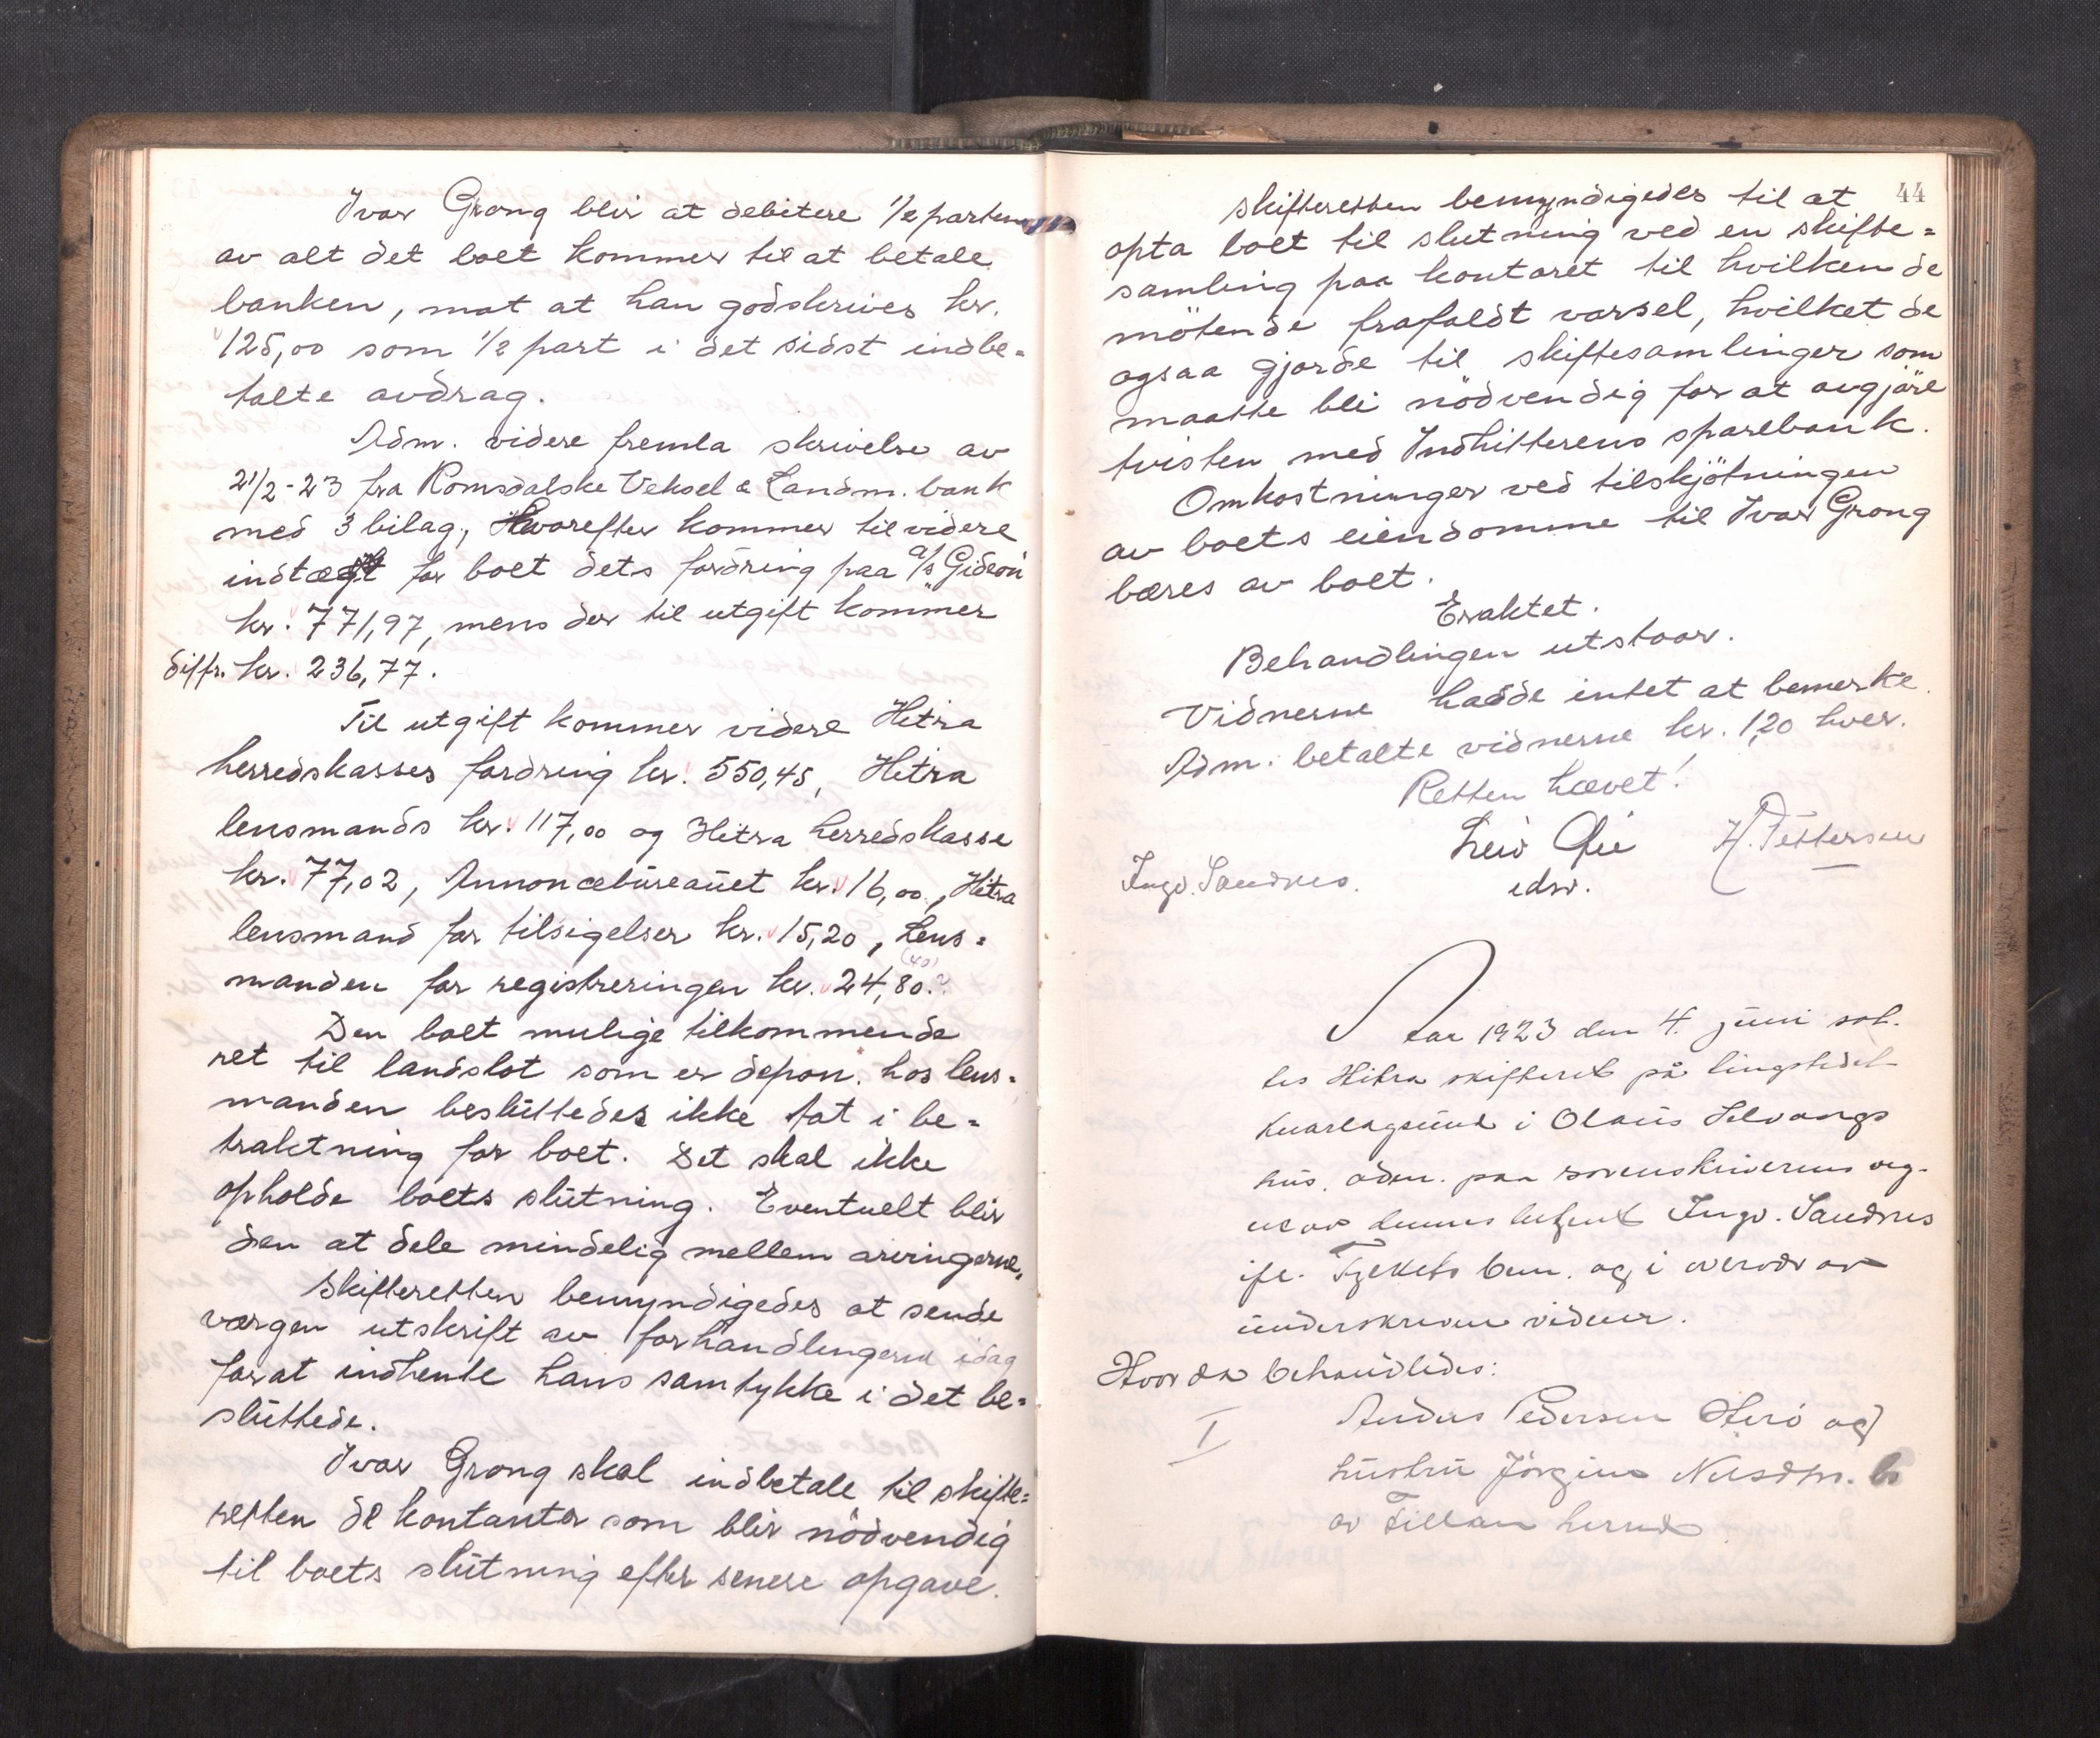 Ivar Grong blir at debitere 1/2 parten
av alt det boet kommer til at betale
banken, mot at han godskrives kr.
125,00 som 1/2 part i det sidst indbe=
talte avdrag.
Adm. videre fremla skrivelse av
21/2-23 fra Romsdalske Veksel & Landm. bank
med 3 bilag, Hvorefter kommer til videre
indtægt for boet dets fordring paa a/s Gideon
kr. 771,97, mens der til utgift kommer
diffr. kr. 236,77.
Til utgift kommer videre Hitra
herredskasses fordring kr. 550,45, Hitra
lensmands kr. 117,00 og Hitra herredskasse
kr. 77,02, Annoncebureauet kr. 16,00, Hitra
lensmand for tilsigelser kr. 15,20, Lens=
(40)
manden for registreringen kr. 24,80.?
Den boet mulige tilkommende
ret til landslot som er depon. hos lens=
manden besluttedes ikke tat i be=
traktning for boet. Det skal ikke
opholde boets slutning. Eventuelt blir
den at dele mindelig mellem arvingerne.
Skifteretten bemyndigedes at sende
værgen utskrift av forhandlingerne idag
forat indhente hans samtykke i det be=
sluttede.
Ivar Grong skal indbetale til skifte=
retten de kontanter som blir nödvendig
til boets slutning efter senere opgave.
44
Skifteretten bemyndigedes til at
opta boet til slutning ved en skifte=
samling paa kontoret til hvilken de
mötende frafaldt varsel, hvilket de
ogsaa gjorde til skiftesamlinger som
maatte bli nödvendig for at avgjöre
tvisten med Indhitterens sparebank.
Omkostninger ved tilskjötningen
av boets eiendomme til Ivar Grong
bæres av boet.
Eraktet.
Behandlingen utstaar.
Vidnerne hadde intet at bemerke.
Adm. betalte vidnerne kr. 1,20 hver.
Retten hævet!
H. Pettersen
Ingv. Sandnes. edsv.
Aar 1923 den 4. juni sat-
tes Hitra skifteret på tingstedet
i Olaus
hus. adm. paa sorenskriverens veg-
ne av hennes Ingv. Sandnes
og i overvær av
underskrevne vidner.
Hvor da behandledes:
I Anders Pedersen og
hustru Jörgine
av Fillan herred